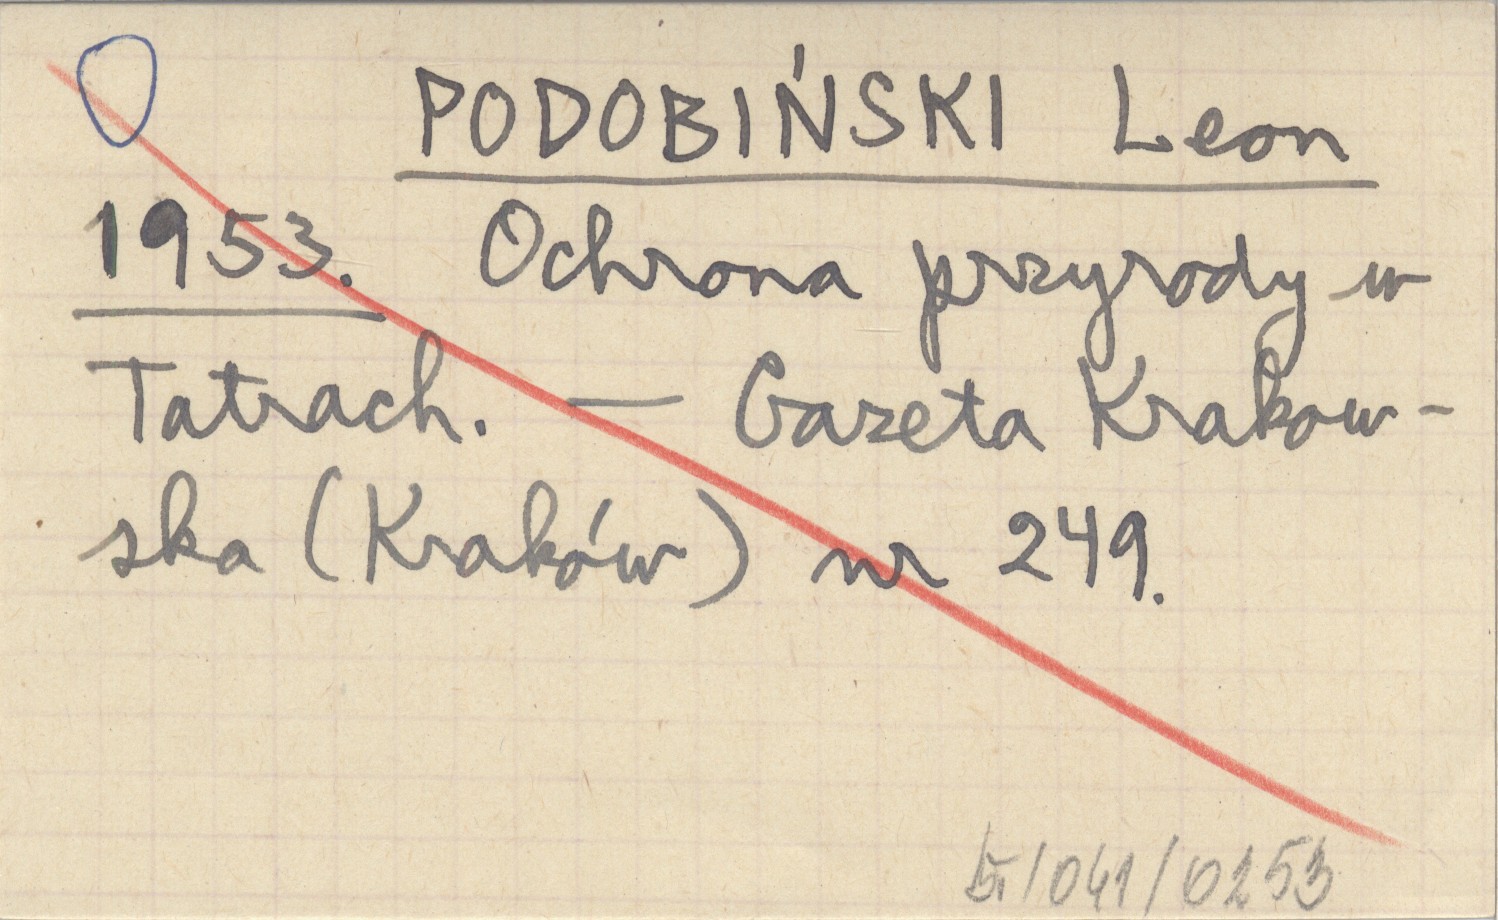 PODOBIŃSKI Leon
1953. Ochrona przyrody w
Tatrach. — Gazeta Krakow-
ska (Kraków) nr 249.
/041/0253